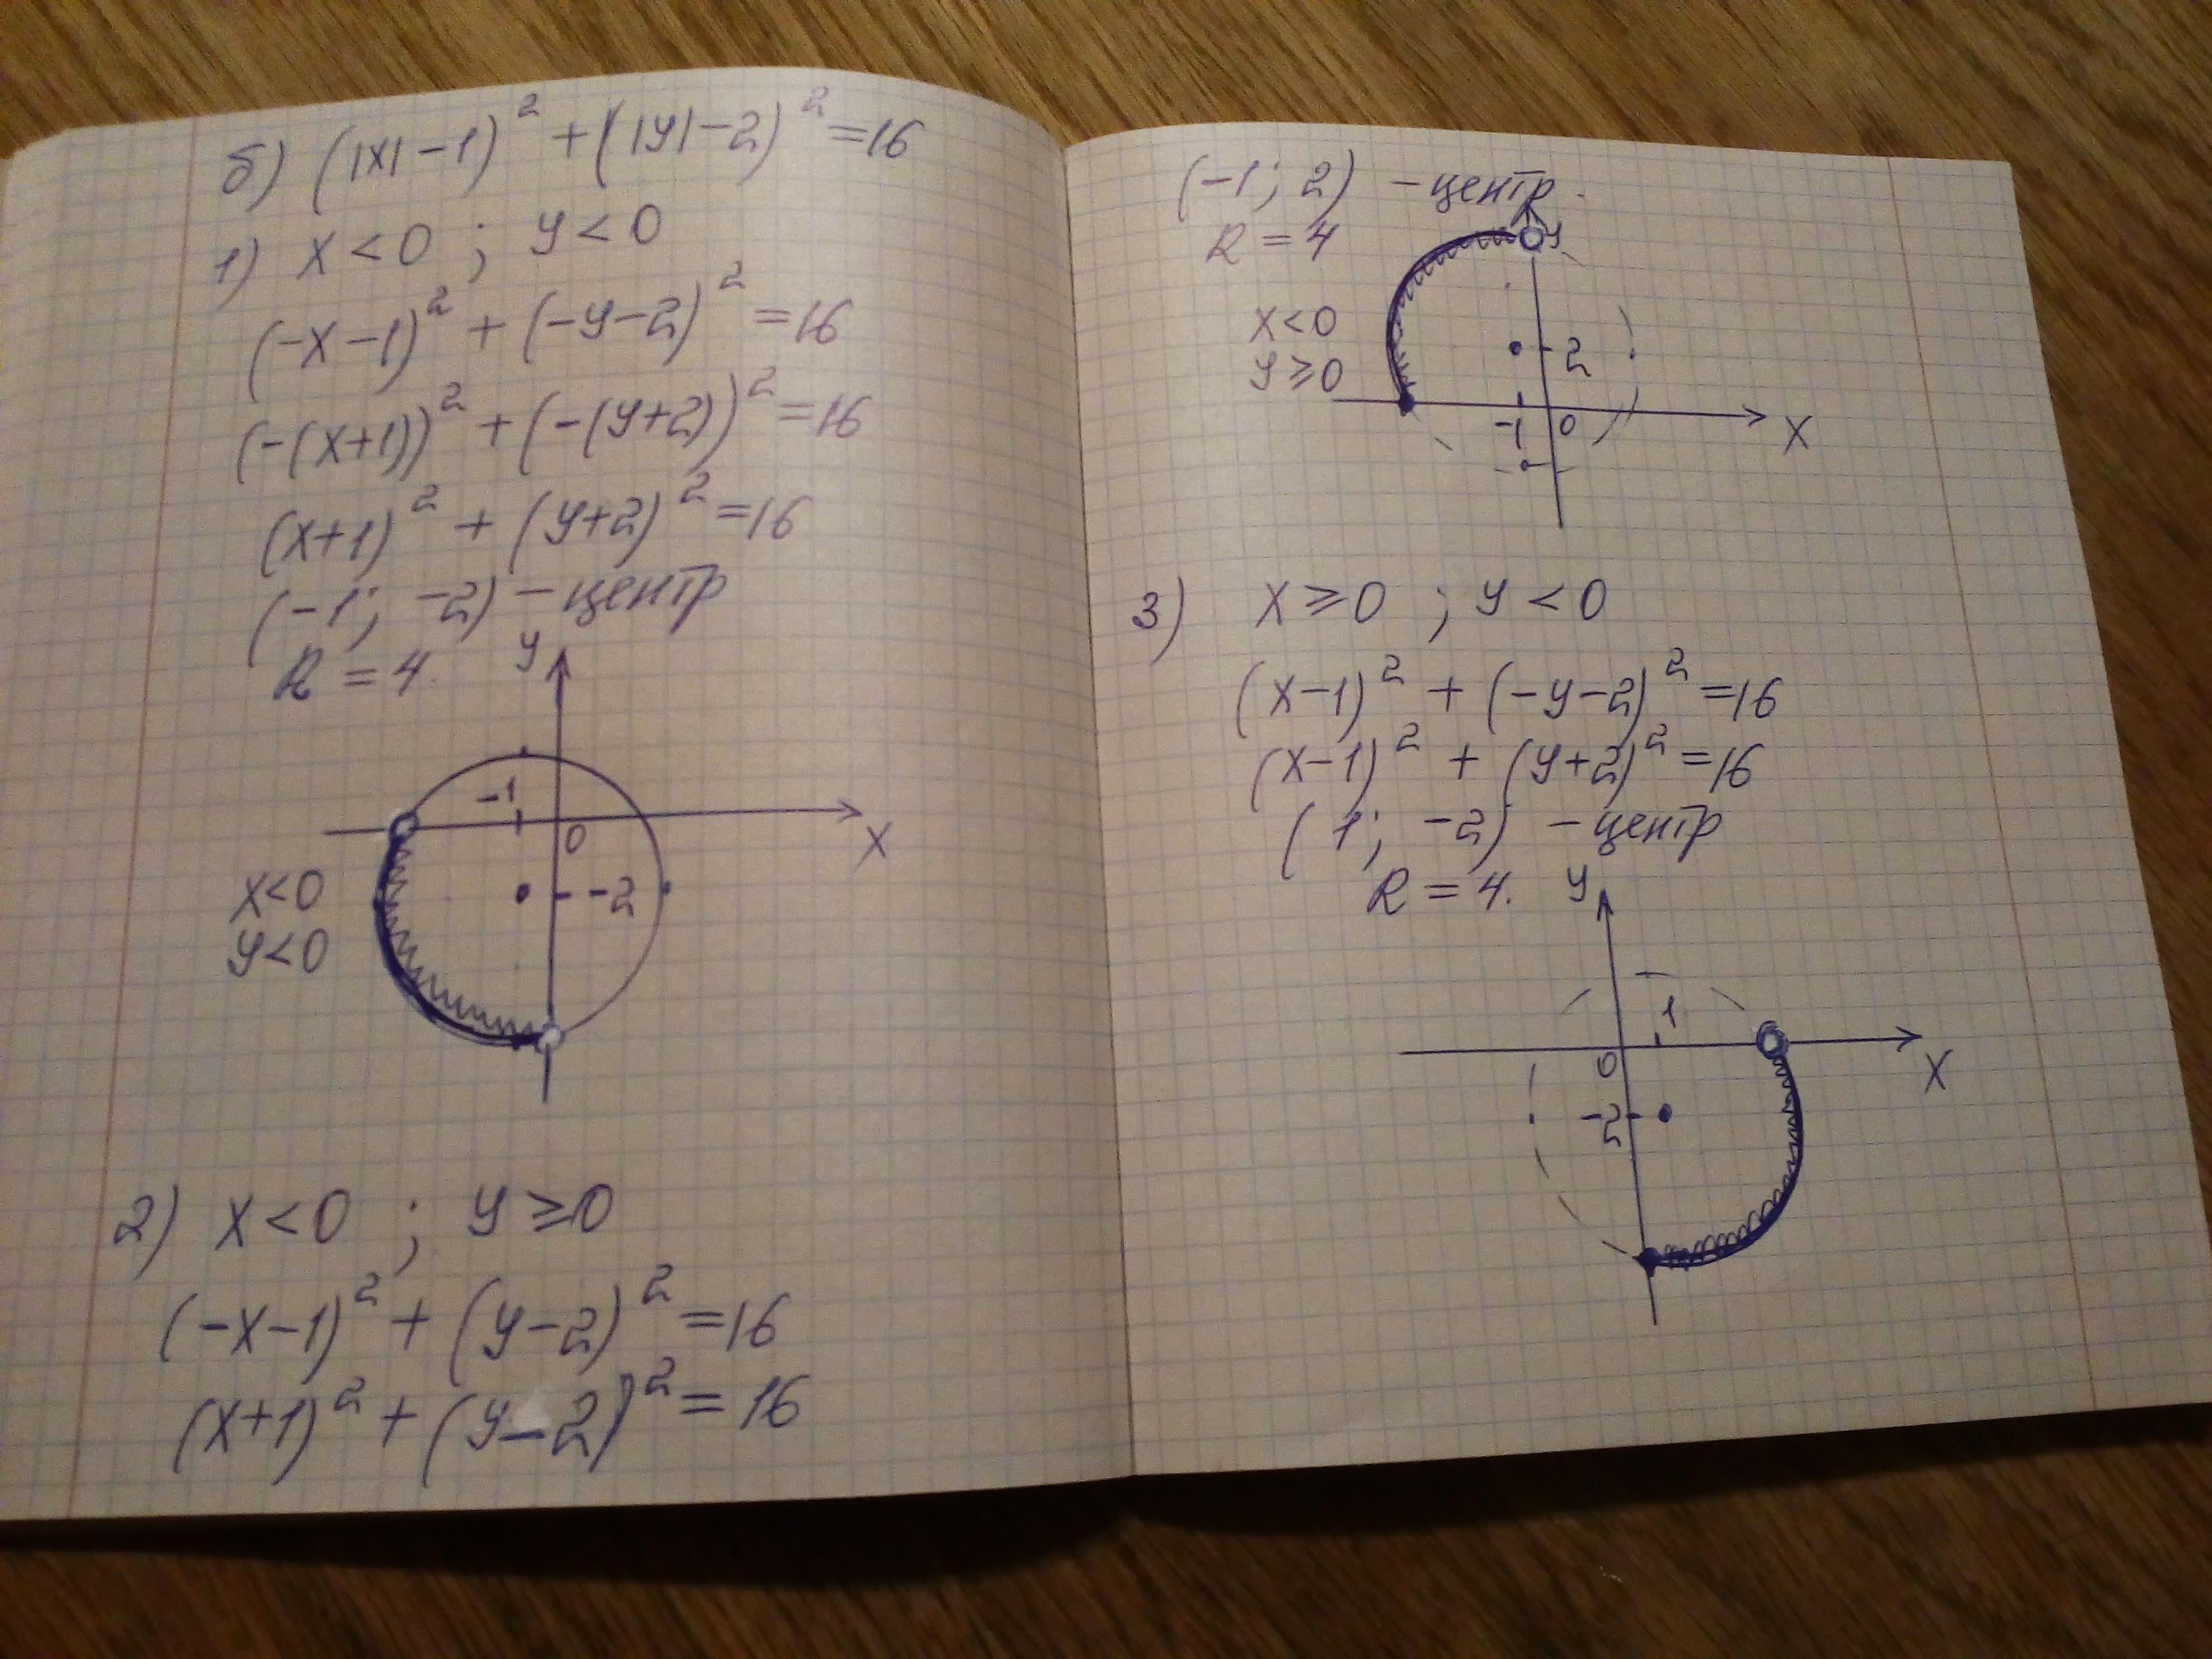 б) (|x|-1)² + (|y|-2)² =16
1) x<0 ; y<0
(-x-1)² + (-y-2)² =16
(-(x+1))² + (-(y+2))² =16
(x+1)² + (y+2)² =16
(-1; -2) - центр
R = 4.
y
-1
0
x
x<0
y<0
-2
2) x<0 ; y≥0
(-x-1)² + (y-2)² =16
(x+1)² + (y-2)² = 16
(-1; 2) - центр.
R = 4
y
x<0
y≥0
2
-1
0
x
3) x≥0 ; y<0
(x-1)² + (-y-2)² =16
(x-1)² + (y+2)² =16
(1; -2) - центр
R = 4.
y
1
0
x
-2